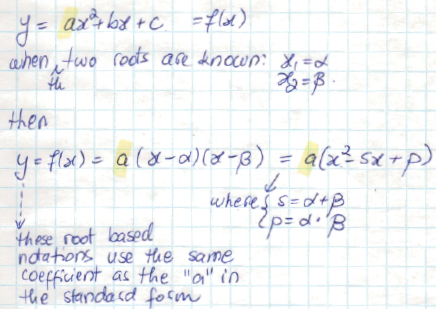 y = ax²+bx+c = f(x)
when the two roots are known: x₁=α
x₂=β.
then
y=f(x) = a(x-α)(x-β) = a(x²-sx+p)
where { s=α+β
p=α·β
these root based
notations use the same
coefficient as the "a" in
the standard form